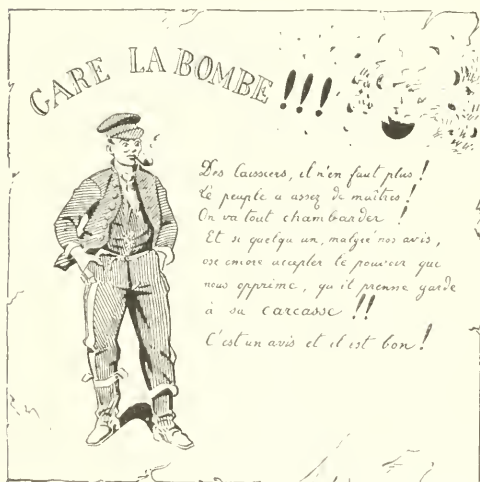 GARE LA BOMBE !!!
Des laissers, il n'en faut plus !
Le peuple a assez de maîtres !
On va tout chambarder !
Et si quelqu'un, malgré nos avis,
ose encore accepter le pouvoir que
nous opprime, qu'il prenne garde
à sa carcasse !!
C'est un avis et il est bon !